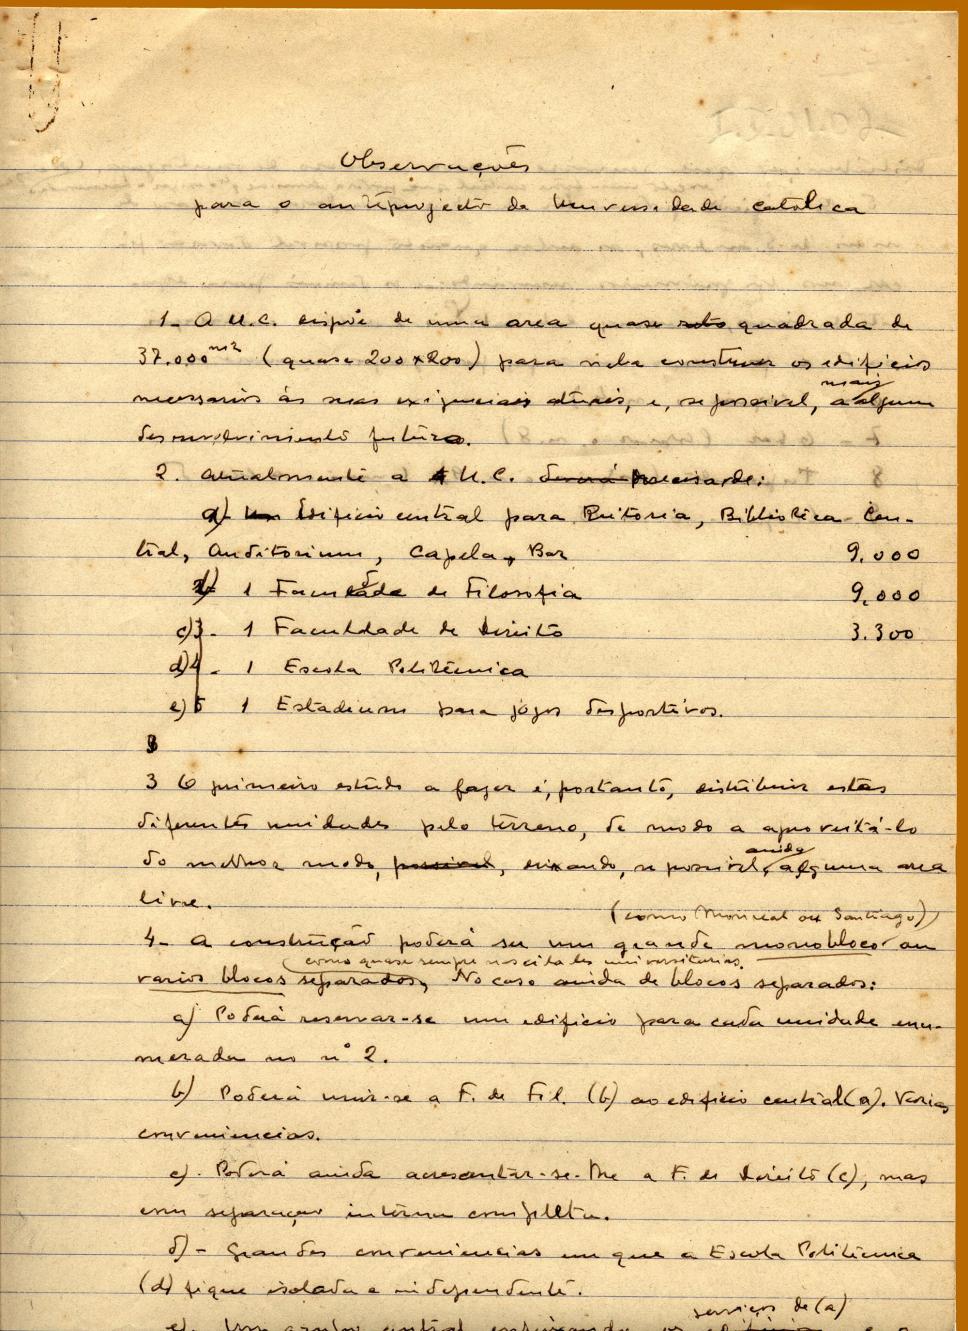 Observações
para o anteprojecto da Universidade Catolica
1- A U.C. dispõe de uma area quase quadrada de
37.000 m2 (quase 200x200) para nela construir os edificios
necessarios ás suas exigencias atuais, e, se possivel, a mais algum
desenvolvimento futuro.
2. Atualmente a U.C. precisa de:
a) Edificio central para Reitoria, Biblioteca Cen-
tral, Auditorium, Capela, Bar 9.000
b) 1 Faculdade de Filosofia 9.000
c) 3- 1 Faculdade de Direito 3.300
d) 4- 1 Escola Politécnica
e) 5 1 Estadium para jogos desportivos.
3
3 O primeiro estudo a fazer é, portanto, distribuir estas
diferentes unidades pelo terreno, de modo a aproveitá-lo
do melhor modo, possivel, deixando, se possivel, ainda alguma area
livre.
(como Monreal ou Santiago)
4- A construção poderá ser um grande monobloco ou
(como quase sempre nas citades universitarias.
varios blocos separados, No caso ainda de blocos separados:
a) Poderá reservar-se um edificio para cada unidade enu-
merada no nº 2.
b) Poderá unir-se a F. de Fil. (b) ao edificio central (a). Varias
conveniencias.
c)- Poderá ainda acrescentar-se-lhe a F. de Direito (c), mas
com separação interna completa.
d)- Grandes conveniencias em que a Escola Politécnica
(d) fique isolada e independente.
serviços de (a)
e)- Um central os